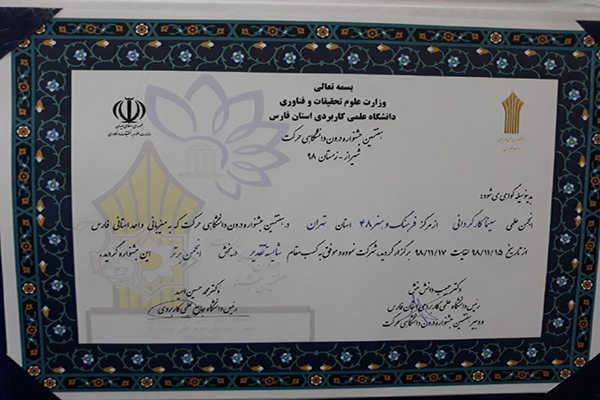 بسمه تعالی
وزارت علوم تحقیقات و فناوری
دانشگاه علمی کاربردی استان فارس
هفتمین جشنواره درون دانشگاهی حرکت
شیراز - زمستان ۹۸
جمهوری اسلامی ایران
وزارت علوم، تحقیقات و فناوری
بدینوسیله گواهی می شود:
انجمن علمی سینما کارگردانی از مرکز فرهنگ و هنر ۴۸ استان تهران در هفتمین جشنواره درون دانشگاهی حرکت که به میزبانی واحد استانی فارس
از تاریخ ۹۸/۱۱/۱۵ لغایت ۹۸/۱۱/۱۷ برگزار گردید، شرکت نموده و موفق به کسب مقام شایسته تقدیر در بخش انجمن برتر این جشنواره گردید.
دکتر حبیب دانش منش
رئیس دانشگاه علمی کاربردی استان فارس
و دبیر هفتمین جشنواره درون دانشگاهی حرکت
دکتر محمد حسین امید
رئیس دانشگاه جامع علمی کاربردی